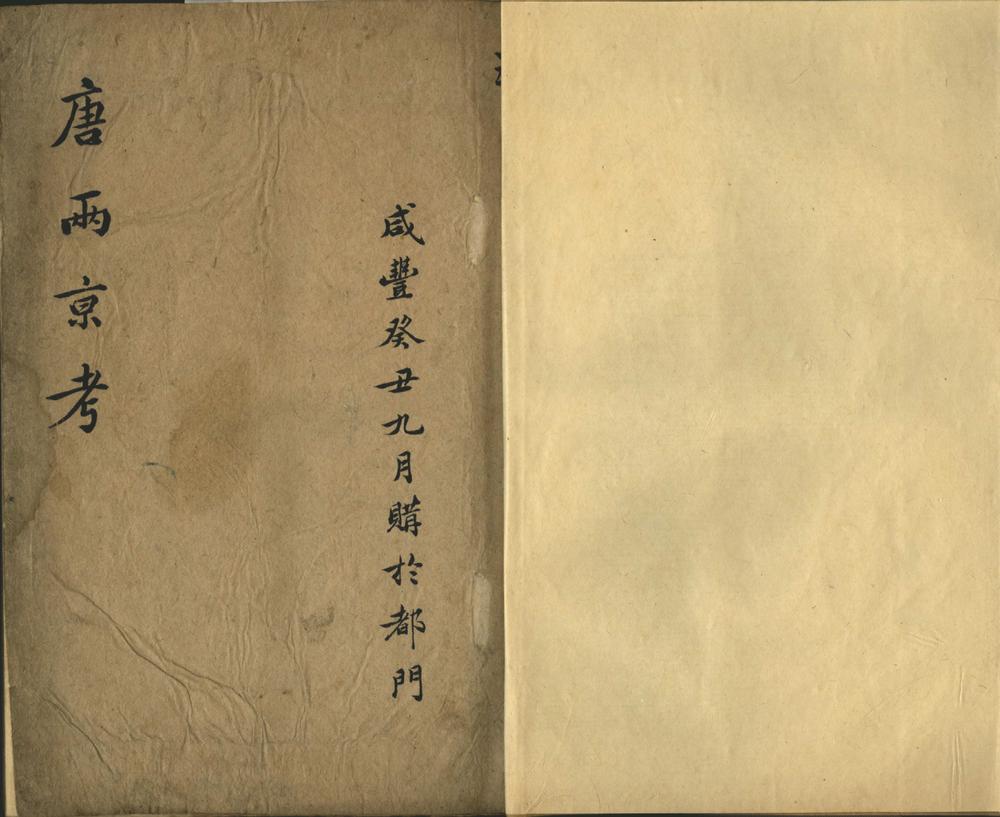 咸豐癸丑九月購於都門
唐兩京考